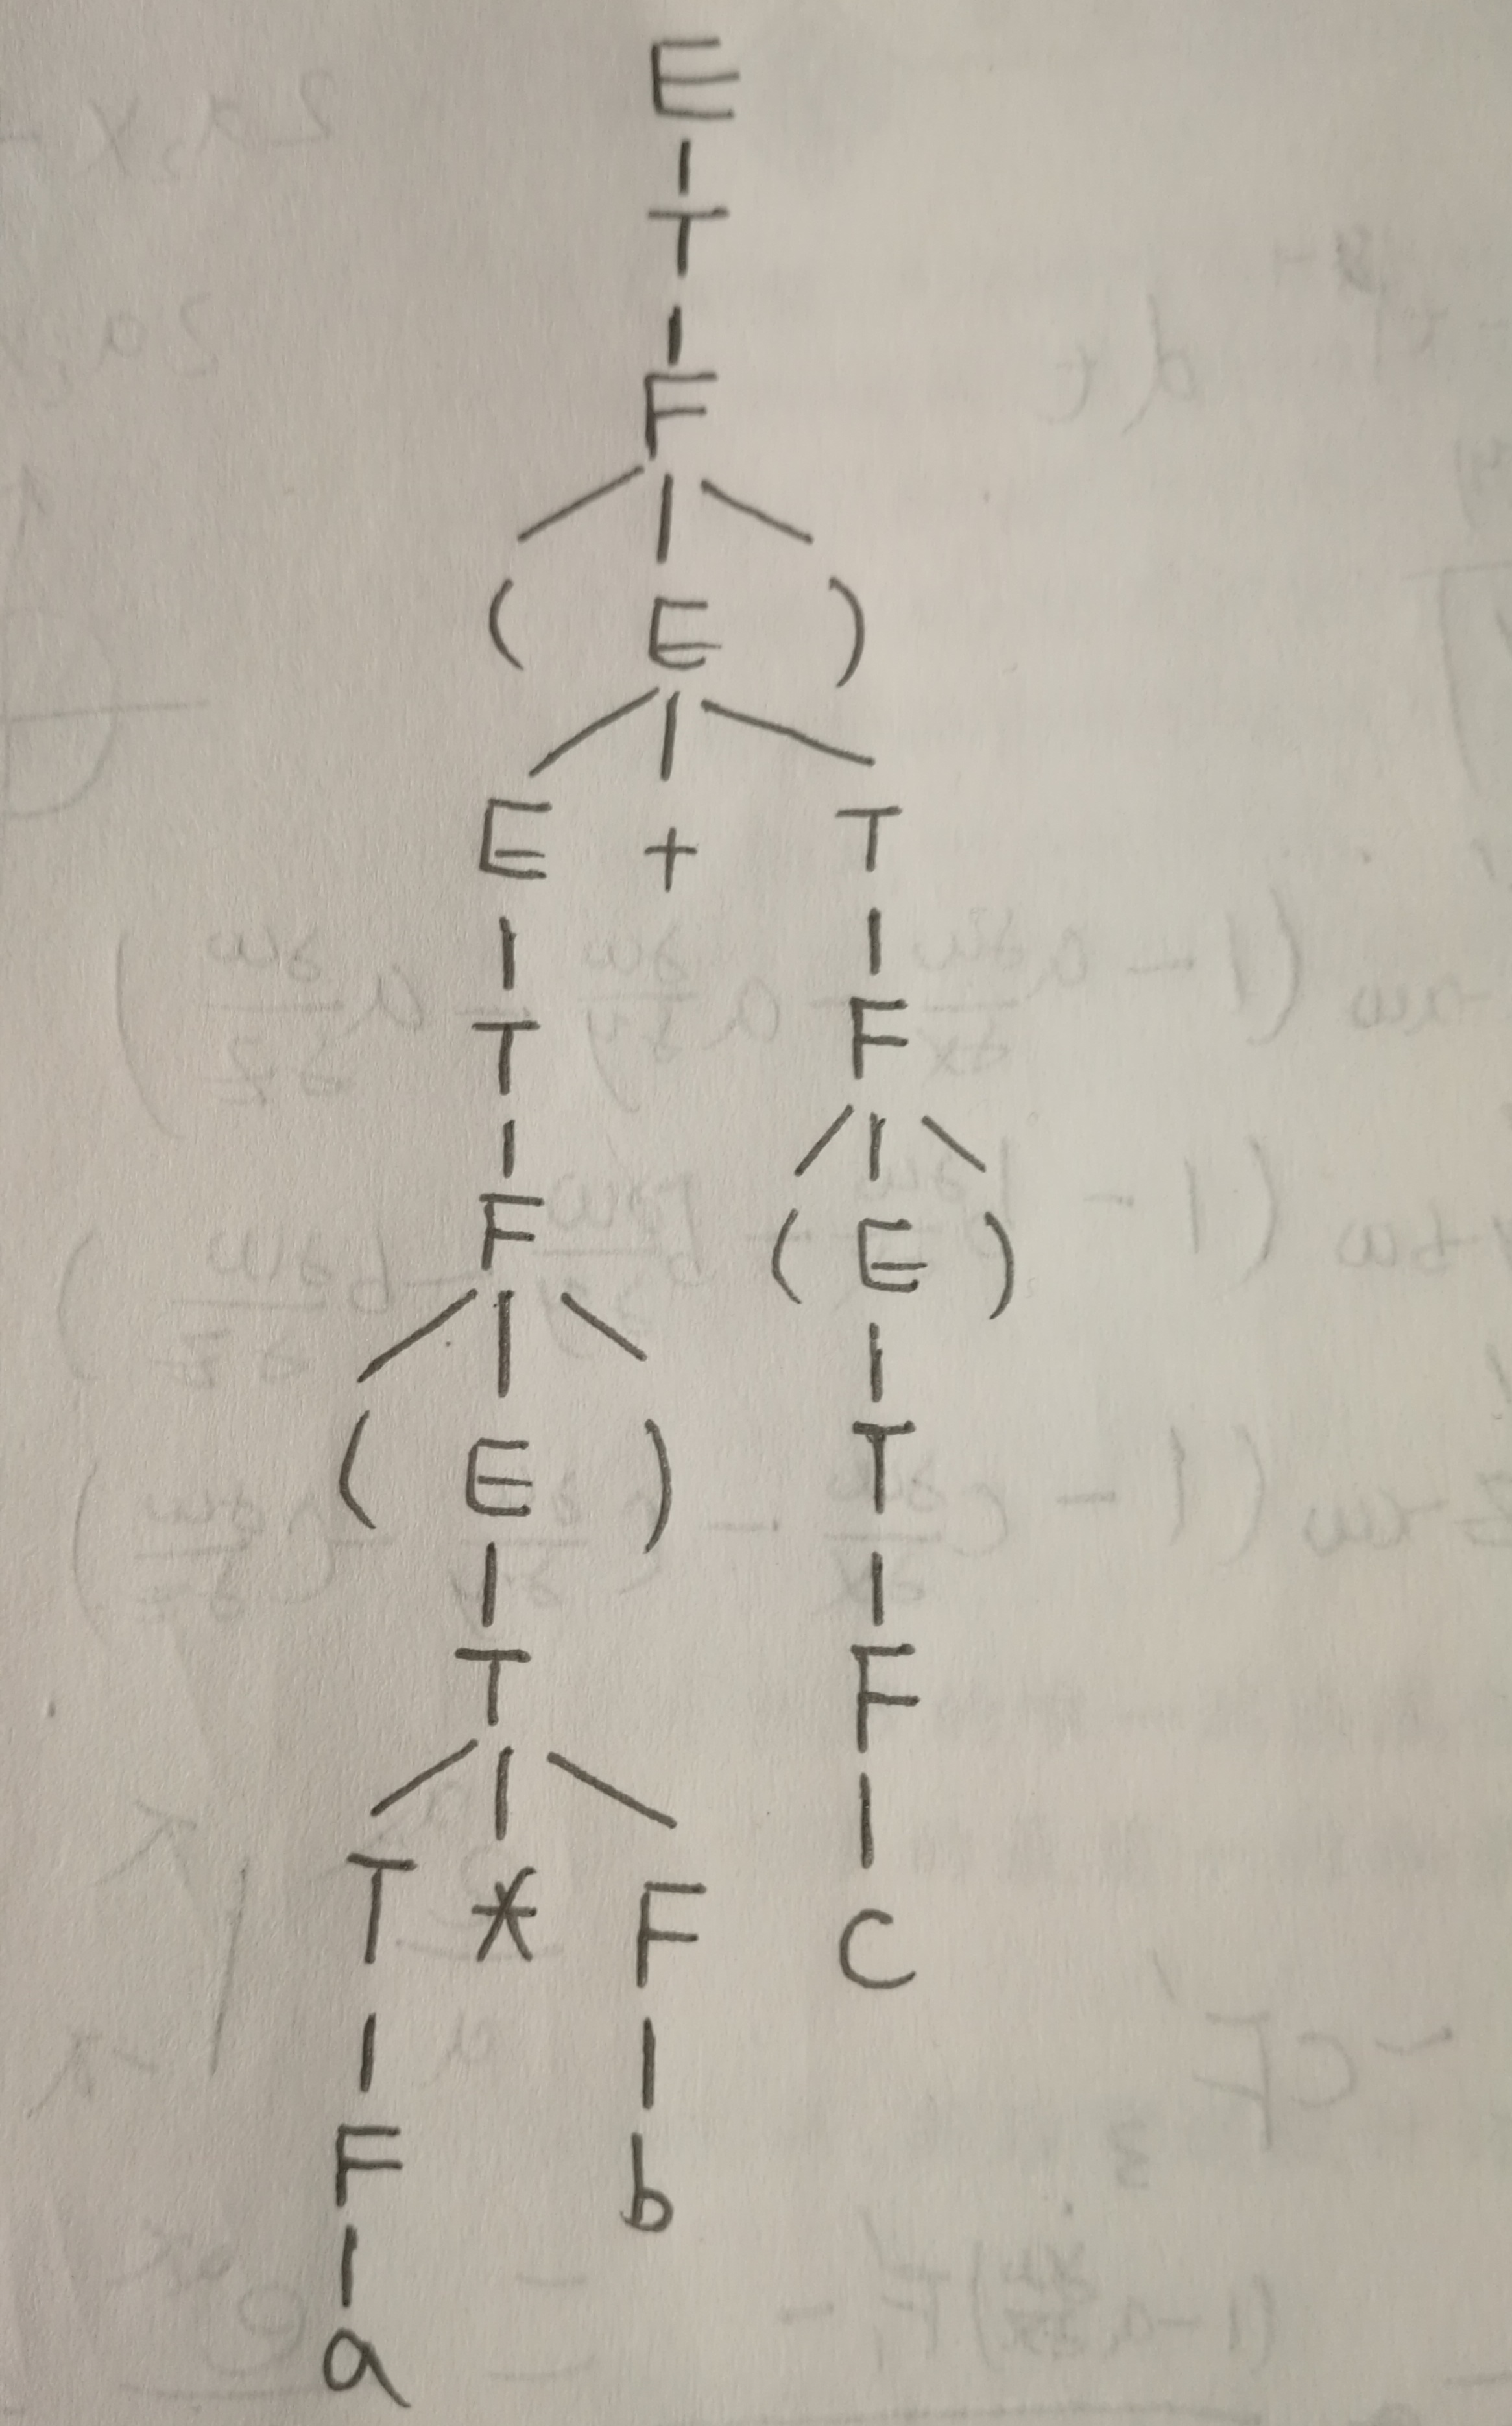 E
T
F
( E )
E + T
T F
F ( E )
( E ) T
T F
T * F C
F b
a